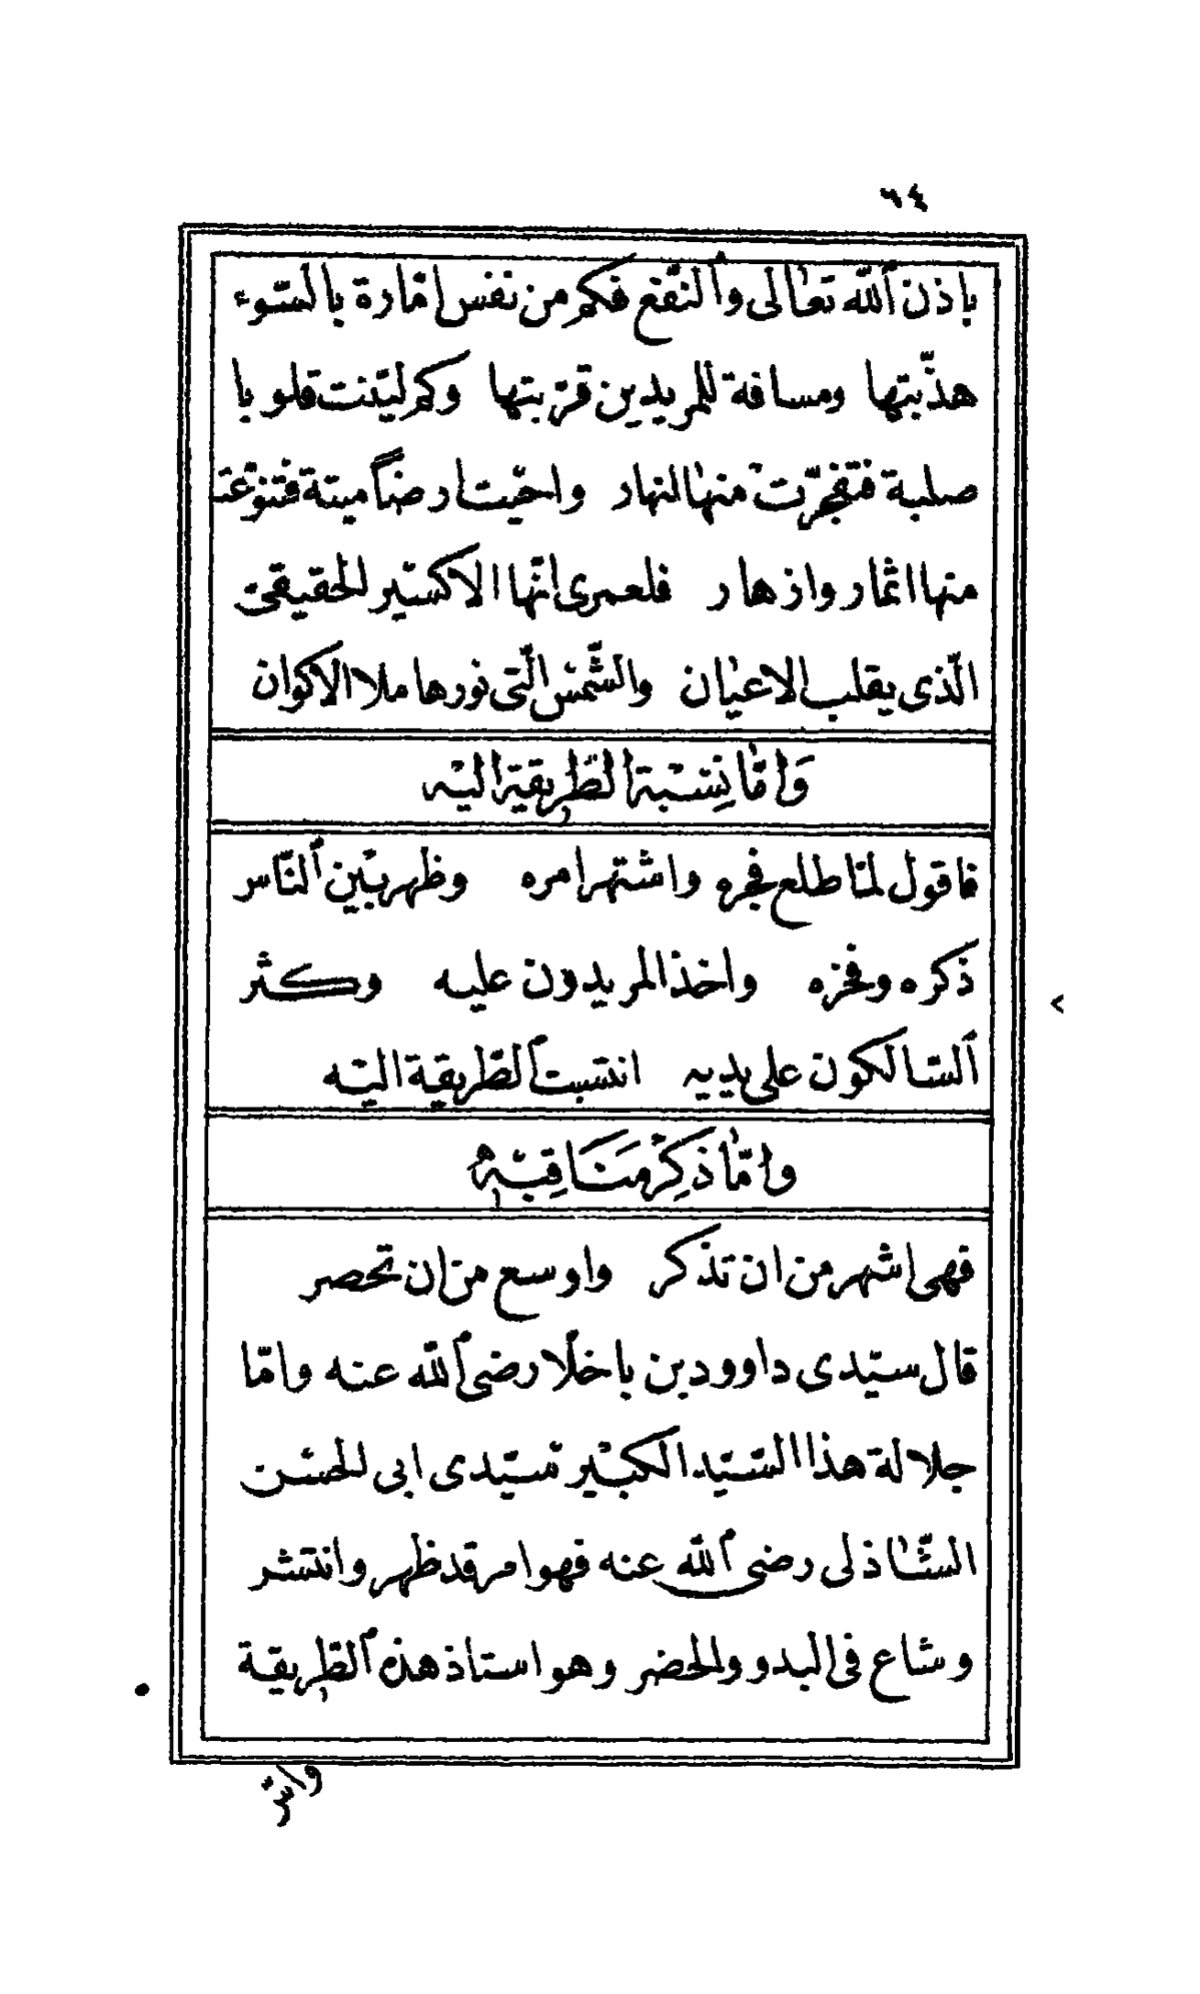 ٦٤
باذن ٱلله تعالى وٱلنّفع فكم من نفس امّارة بالسّوء
هذّبتها ومسافة للمريدين قرّبتها وكم ليّنت قلوبا
صلبة فتفجّرت منها انهار واحيت ارضاً ميتة فتنوّعت
منها اثمار وازهار فلعمرى انّها الاكسير الحقيقى
الّذى يقلب الاعيان والشّمس الّتى نورها ملا الاكوان
وَامّا نِسْبة الطّرِيقية اليْه
فاقول لمّا طلع فجره واشتهر امره وظهر بين ٱلنّاس
ذكره وفخره واخذ المريدون عليه وكثر
ٱلسّالكون على يديه انتسبت ٱلطّريقية اليه
وامّا ذكِرْ مَنَاقِبْه
فهى اشهر من ان تذكر واوسع من ان تحصر
قال سيّدى داوود بن باخلا رضى ٱلله عنه وامّا
جلالة هذا السّيّد الكبير سيّدى ابى الحسن
الشّاذلى رضى ٱلله عنه فهو امر قد ظهر وانتشر
وشاع فى البدو والحضر وهو استاذ هذه ٱلطّريقة